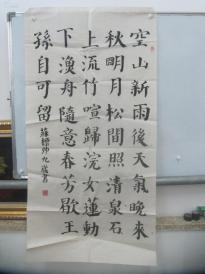 空山新雨後天氣晚來
秋明月松間照清泉石
上流竹喧歸浣女蓮動
下漁舟隨意春芳歇王
孫自可留
九歲書